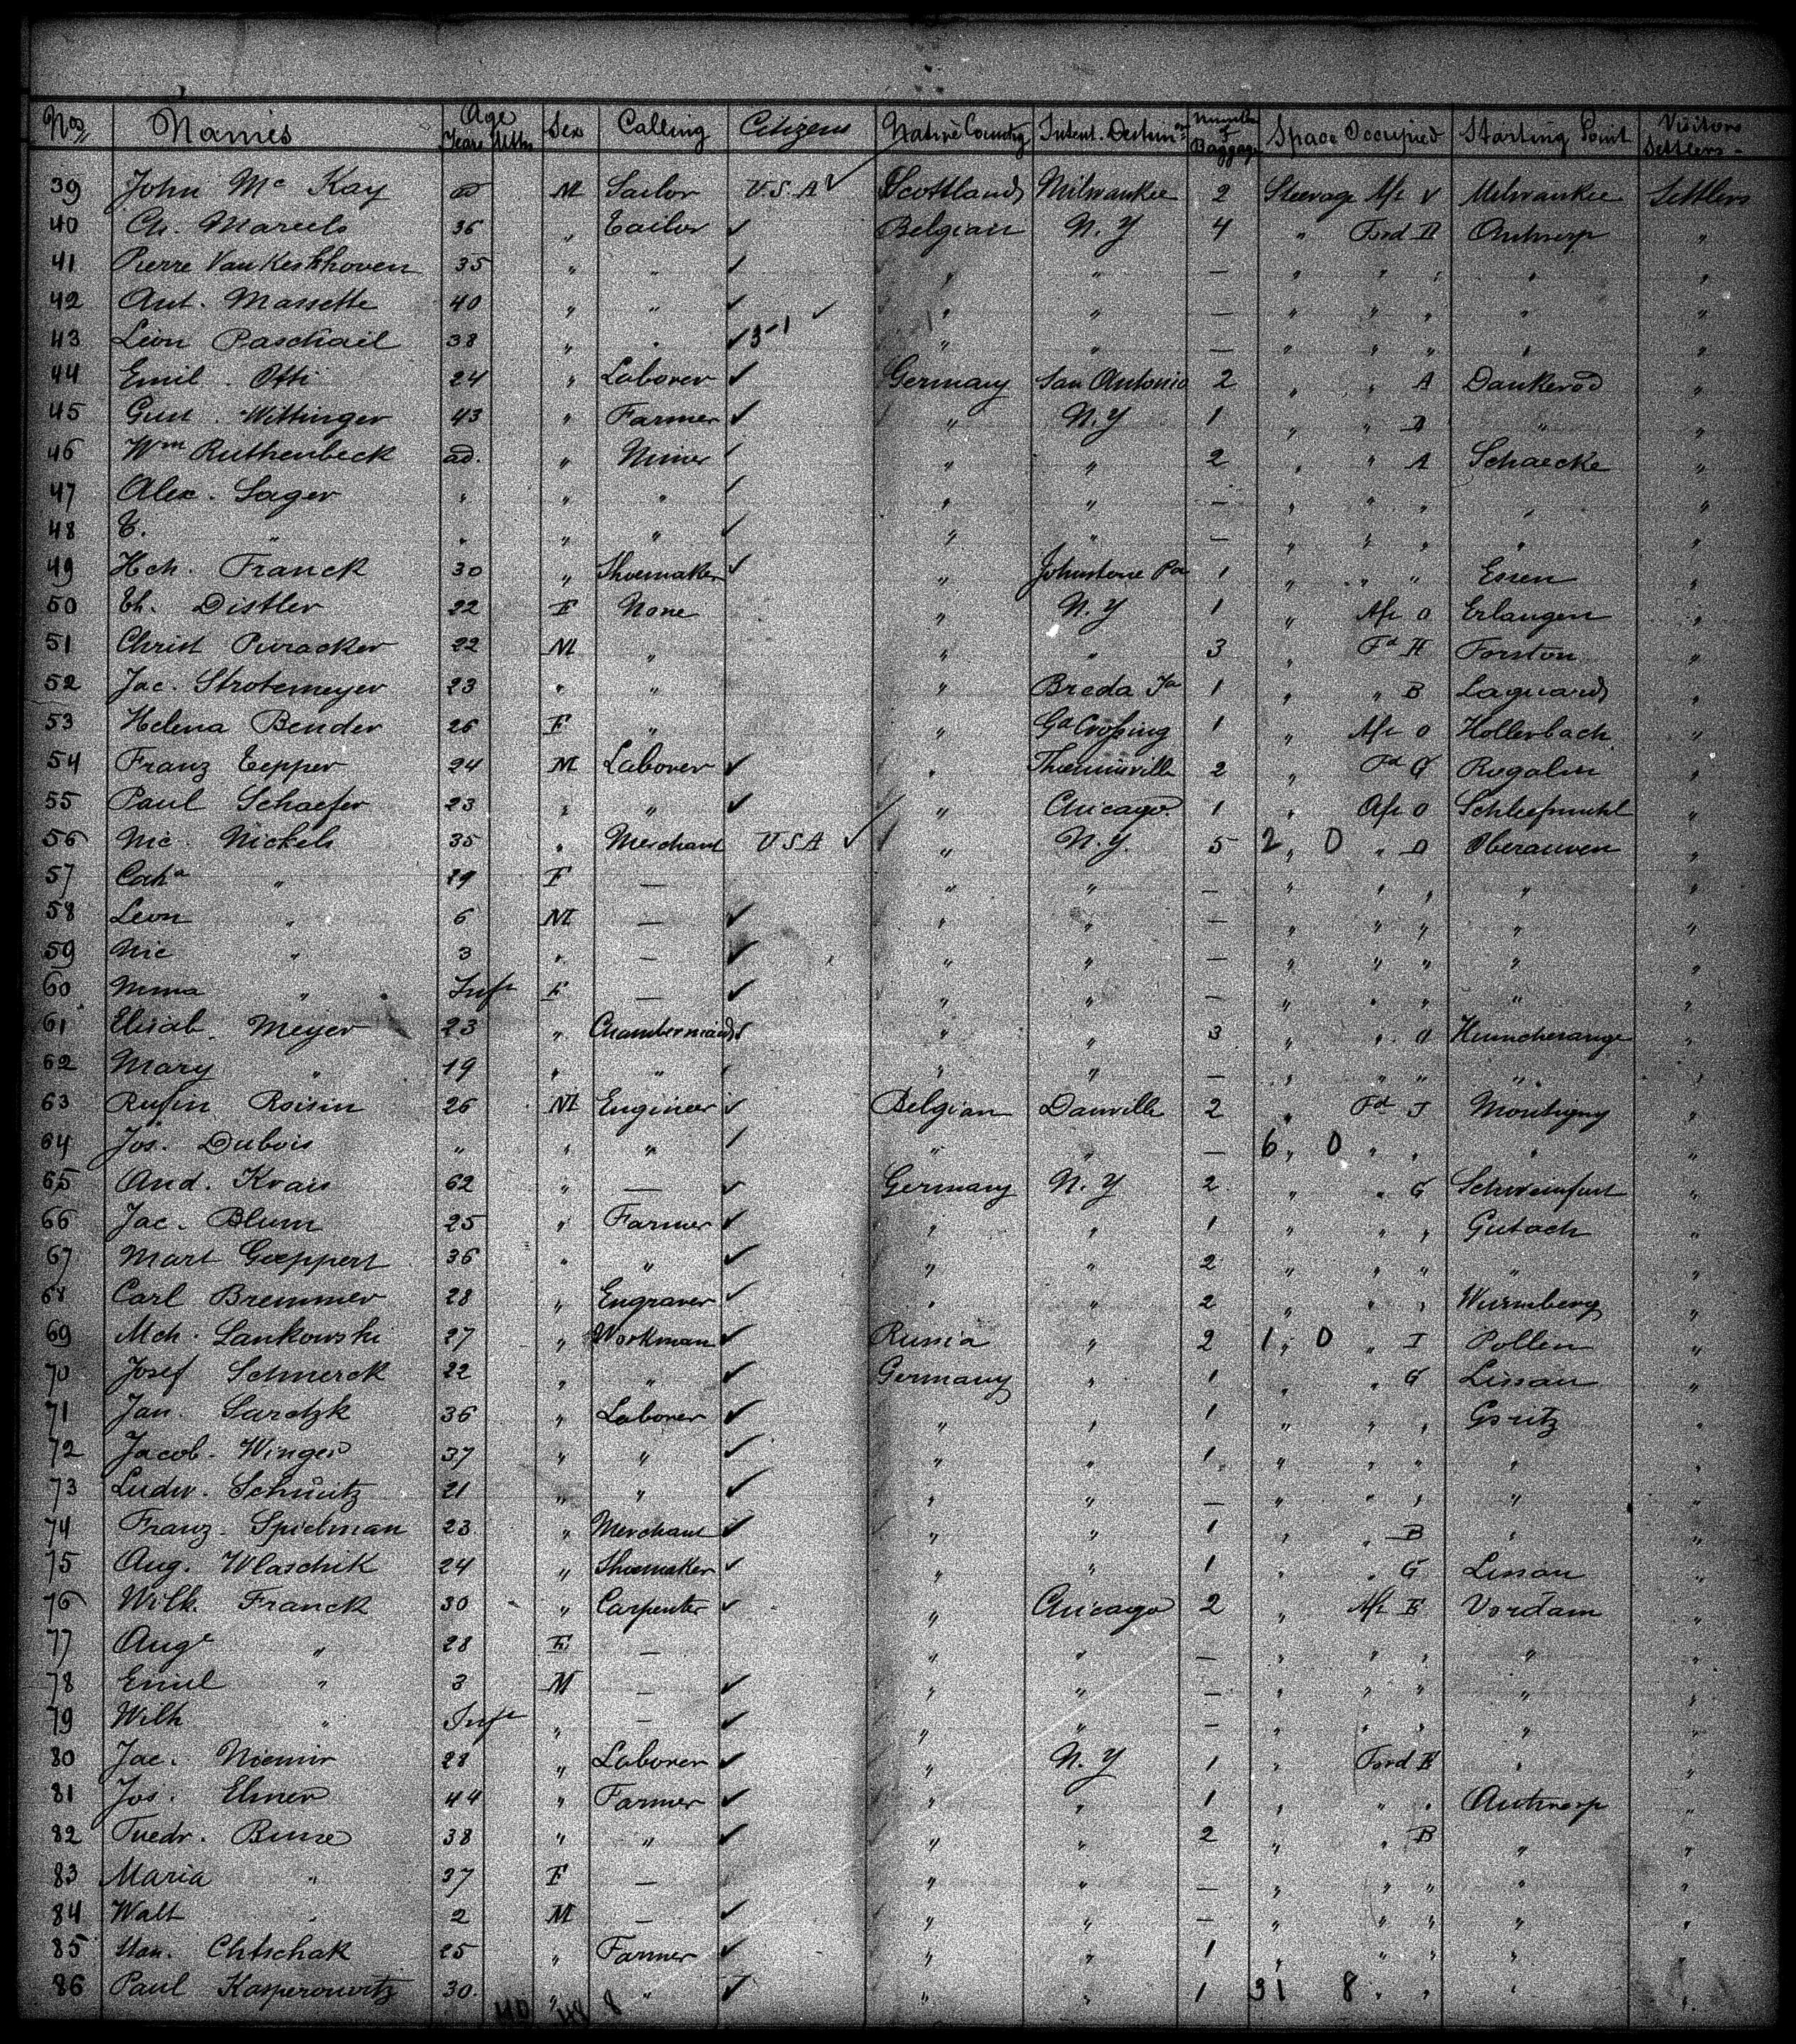 Nos Names Age Years Mths Sex Calling Citizens Native Country Intent. Destin Number of Baggage Space Occupied Starting Point Visitors Settlers
39 John Mc Kay ad M Sailor U.S.A Scottland Milwaukee 2 Steerage Aft V Milwaukee Settlers
40 Ch. Marcels 36 " Tailor Belgian N.Y 4 " Ford II Antwerp "
41 Pierre Van Kerkhoven 35 " " " " — " " " " "
42 Ant. Massette 40 " " " " — " " " " "
43 Léon Paschail 38 " " 3-1 " " — " " " " "
44 Emil. Otti 24 " Laborer Germany San Antonio 2 " " A Dankerod "
45 Gust. Wittinger 43 " Farmer " N.Y 1 " " " "
46 Wm Ruthenbeck ad. " Miner " " 2 " " A Schaecke "
47 Alex. Sager " " " " " — " " " " "
48 " " " " " " — " " " " "
49 Hch. Franck 30 " Shoemaker " Johnstone Pa 1 " " " Essen "
50 Distler 22 F None " N.Y 1 " Aft O Erlangen "
51 Christ 22 M " " " 3 " Fd H Forston "
52 Jac. Strotemeyer 23 " " " Breda Ja 1 " " B Laguard "
53 Helena Bender 26 F " " Ga Crossing 1 " Aft O Hollerbach "
54 Franz Tepper 24 M Laborer " 2 " Fd G Rogalin "
55 Paul Schaefer 23 " " " Chicago. 1 " Aft O Schliefmuhl "
56 Nic. Nickels 35 " Merchant U S A " N.Y. 5 2 " 0 " Oberauven "
57 Catha " 29 F — " " — " " " " "
58 Leon " 6 M — " " — " " " " "
59 Nic " 3 " — " " — " " " " "
60 " Inft F — " " — " " " " "
61 Elisab. Meyer 23 " Chambermaid " " 3 " " O Huncherange "
62 Mary " 19 " " " " — " " " " "
63 Rufin Roisin 26 M Engineer Belgian Danville 2 " Fd J Montigny "
64 Jos. Dubois " " " " " — 6 " 0 " " " "
65 And. Krais 62 " — Germany N.Y 2 " " G Schweinfurt "
66 Jac. Blum 25 " Farmer " " 1 " " " Gutach "
67 Mart Goeppert 36 " " " " 2 " " " " "
68 Carl Bremmer 28 " Engraver " " 2 " " " Wurmberg "
69 Mch. Lankowski 27 " Workman Russia " 2 1 " 0 " I Pollen "
70 Josef Schmerck 22 " " Germany " 1 " " G Lissau "
71 Jan. Sarotzk 36 " Laborer " " 1 " " " Goritz "
72 Jacob. Winger 37 " " " " 1 " " " " "
73 Ludw. Schmitz 21 " " " " — " " " " "
74 Franz. Spielman 23 " Merchant " " 1 " " B " "
75 Aug. Wlaschik 24 " Shoemaker " " 1 " " G Lissau "
76 Wilh. Franck 30 " Carpenter " Chicago 2 " Aft E Vordam "
77 Auge " 28 F — " " — " " " " "
78 Emil " 3 M — " " — " " " " "
79 Wilh " Inft " — " " — " " " " "
80 Jac. Niemir 28 " Laborer " N.Y 1 " Ford " "
81 Jos. Elmer 44 " Farmer " " 1 " " " Antwerp "
82 Friedr. Buse 38 " " " " 2 " " B " "
83 Maria " 37 F — " " — " " " " "
84 Walt " 2 M — " " — " " " " "
85 Stan. Chtschak 25 " Farmer " " 1 " " " " "
86 Paul Kasperowitz 30. " " " " 1 31 8 " " " "
40 48 8